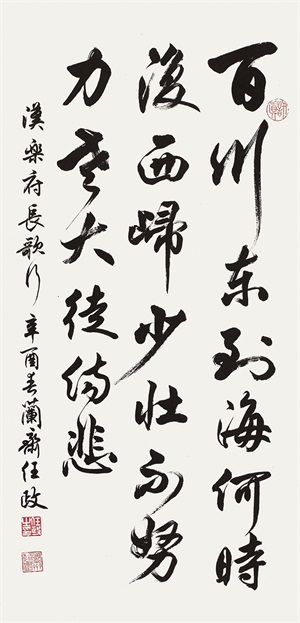 百川东到海何時
復西歸少壮不努
力老大徒伤悲
漢樂府長歌行 辛酉春蘭齋任政